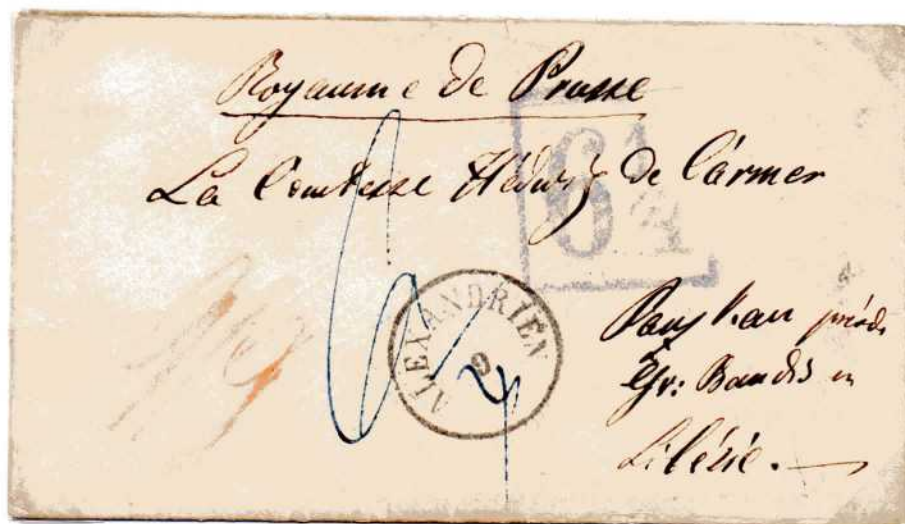 Royaume de Prusse
La Comtesse Hédwig de Cármer
6 1/4
6
ALEXANDRIEN
9
près de
Gr: Baudis en
Silésie.